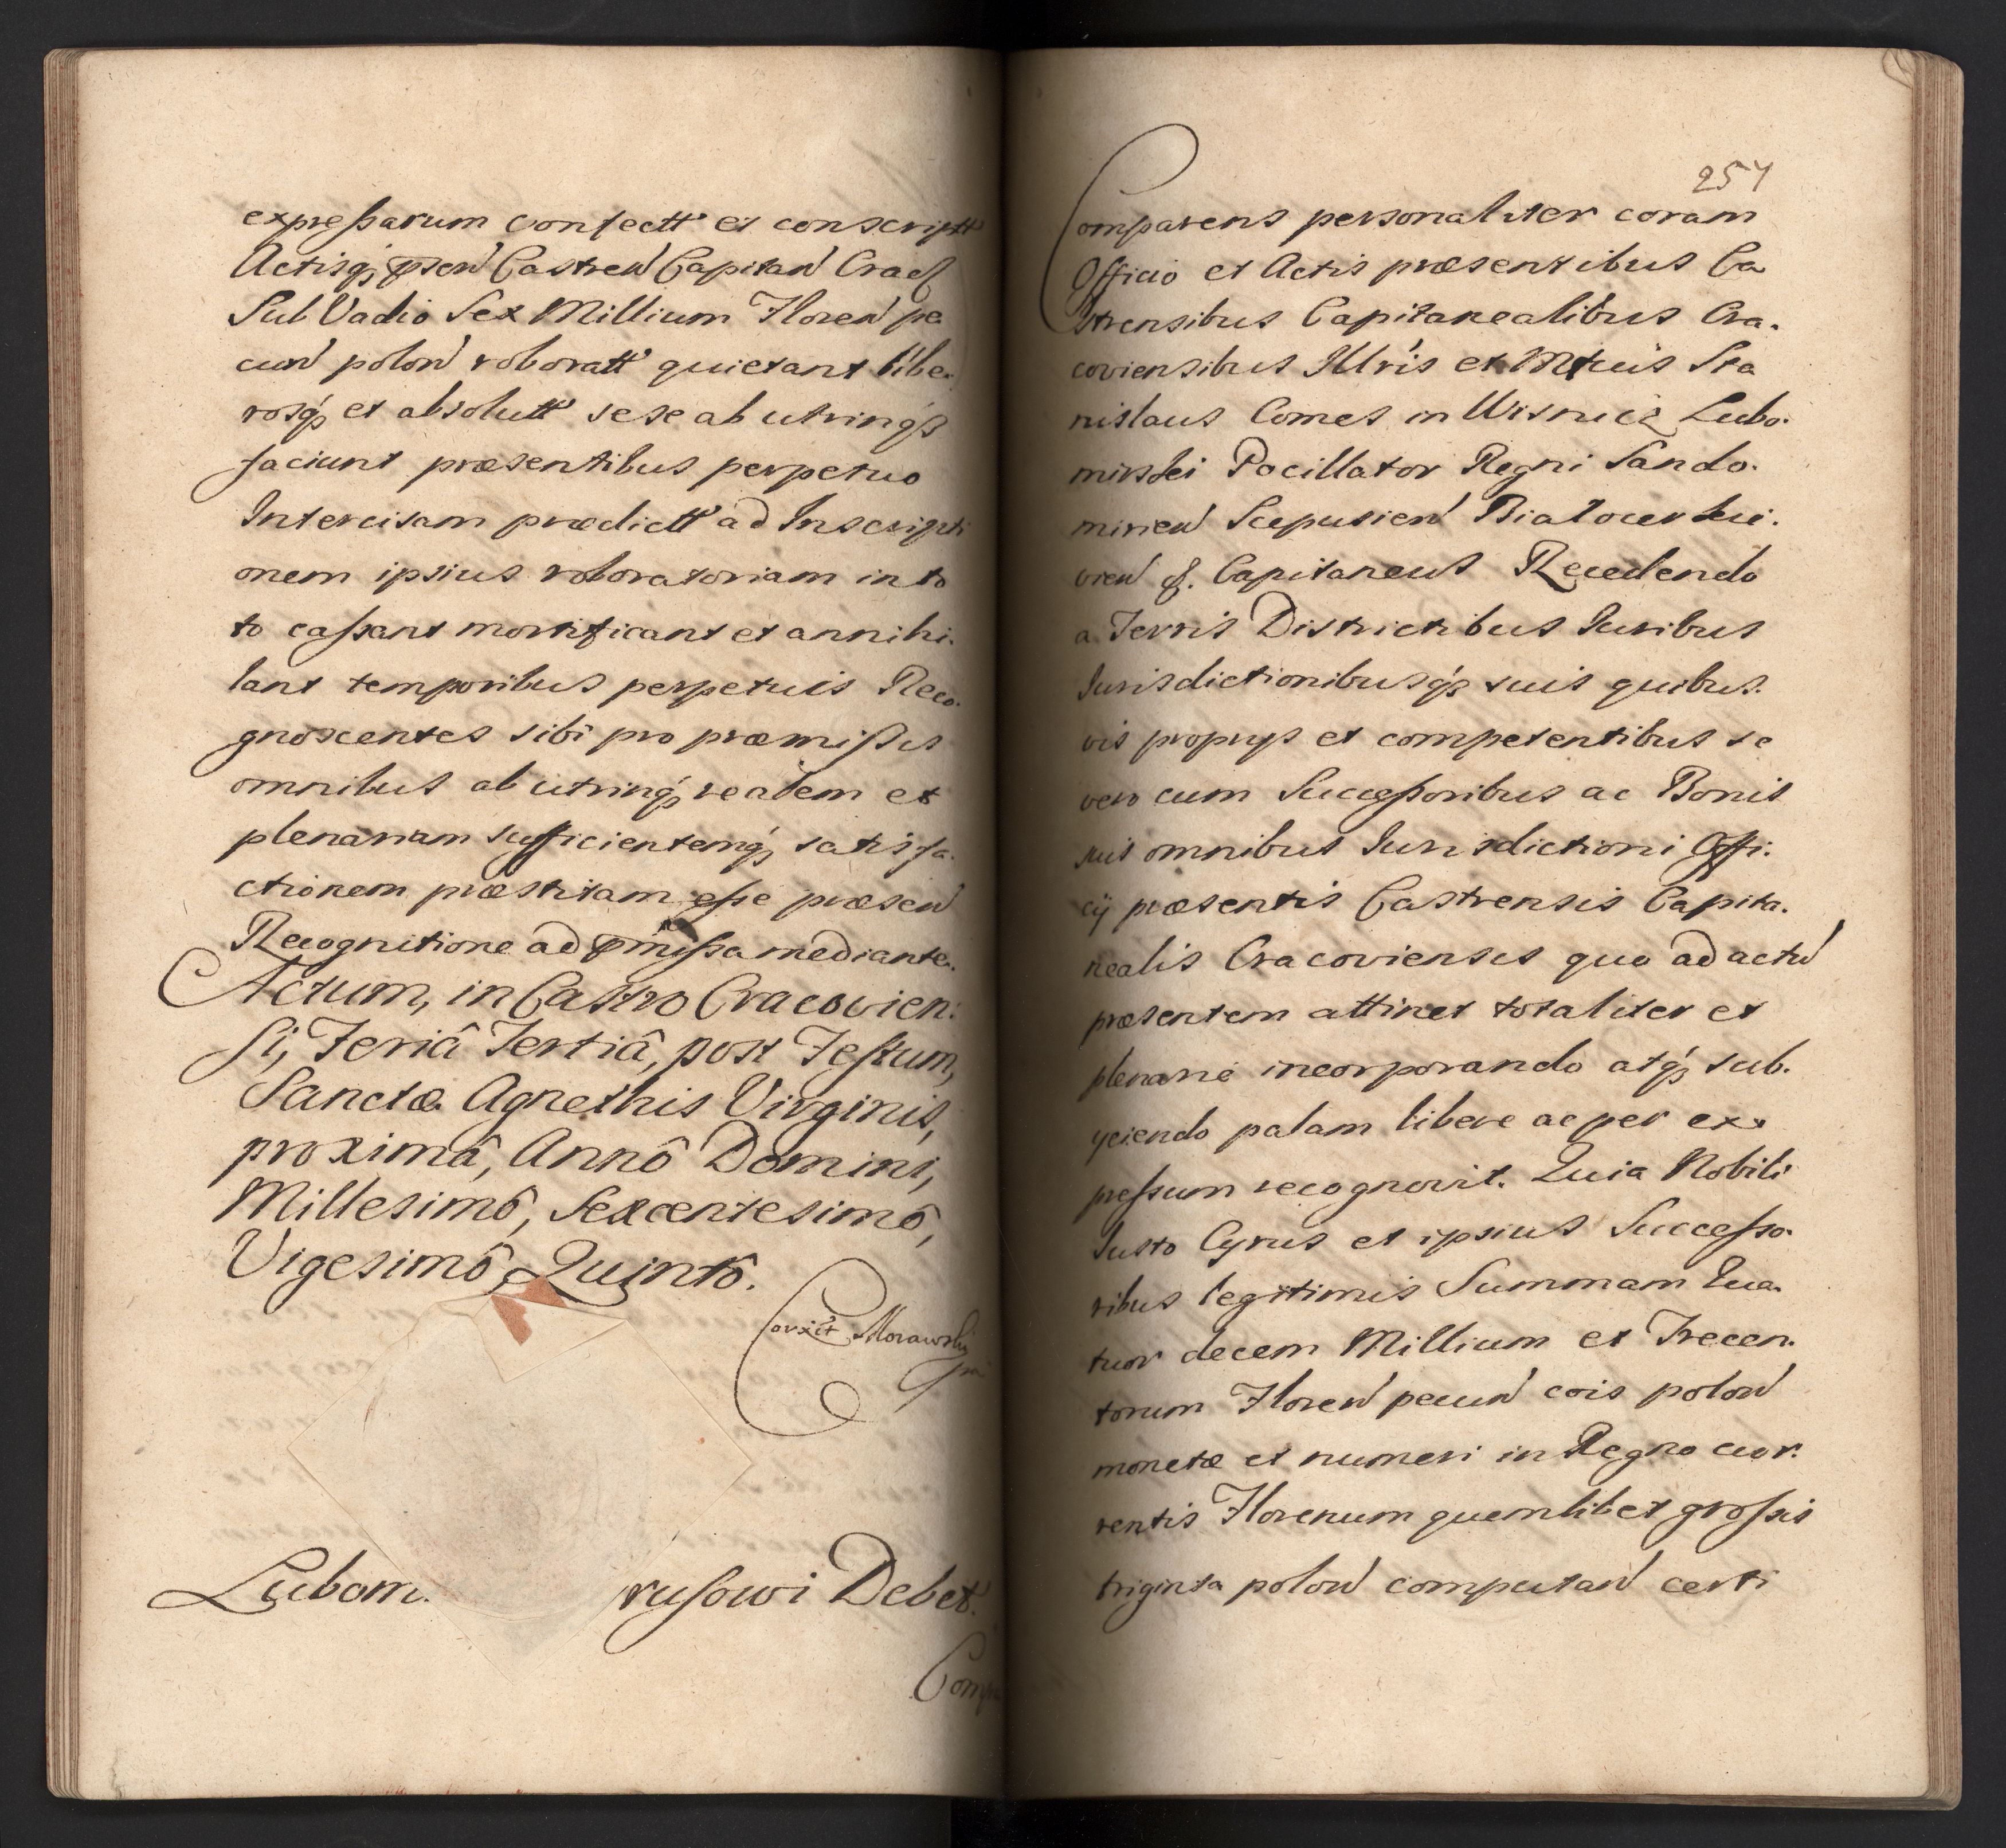 expressarum confectt et conscriptt
Actisq; pnsen Castren Capitan Crac
Sub Vadio Sex Millium Floren pe
cun polon roboratt quietant libe.
rosq; et absolutt sese ab utrinq;
faciunt præsentibus perpetuo
Intercisam prædictt ad Inscripti
onem ipsius roboratoriam in to
to cassant mortificant et annihi.
lant temporibus perpetuis Reco.
gnoscentes sibi pro præmissis
omnibus ab utrinq; realem et
plenariam sufficientemq; satisfa.
ctionem præstitam esse præsen
Recognitione ad pmissa mediante.
Actum, in Castro Cracovien:
si, Feriâ Tertiâ, post Festum,
Sanctæ Agnethis Virginis,
proximâ, Annô Domini,
Millesimô, Sexcentesimô,
Vigesimô Quintô.
Corxit Morawsky
Lubom. rusowi Debet.
Comp
257
Comparens personaliter coram
Officio et Actis præsentibus Ca
strensibus Capitanealibus Cra.
coviensibus Illris et Mfcus Sta
nislaus Comes in Wisnicz Lubo.
mirski Pocillator Regni Sando.
mirien Scepusien Białocerkie.
vien &. Capitaneus Recedendo
a Terris Districtibus Iuribus
Iurisdictionibusq; suis quibus.
vis proprys et competentibus se
vero cum Successoribus ac Bonis
suis omnibus Iurisdictioni Offi.
cij præsentis Castrensis Capita.
nealis Cracoviensis quo ad actu
præsentem attinet totaliter et
plenarie incorporando atq; sub.
yciendo palam libere ac per ex.
pressum recognovit. Quia Nobili
Iusto Cyrus et ipsius Successo.
ribus legitimis Summam Qua.
tuor decem Millium et Trecen.
torum Floren pecun cois polon
monetæ et numeri in Regno cur.
rentis Florenum quemlibet grossis
triginta polon computan certi